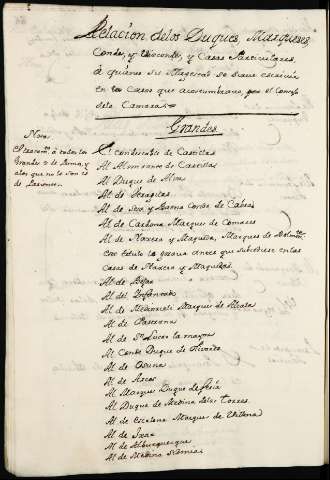 Relacion delos Duques, Marqueses,
Condes, y Vizcondes, y Casas Particulares
á quienes Su Magestad se sirve escrivir
en los Casos que acostumbrava, por el Consejo
dela Camara
Grandes
Nota
a todos los
Grandes 
alos que no lo son 
Al Condestable de Castilla
Al Almirante de Castilla
Al Duque de Alva
Al de
Al de Sesa y Baena Conde de Cabra
Al de Cardona Marques de Comares
Al de Naxera y Maqueda, Marques de
este titulo la gozava antes que subcediese en las
Casas de Naxera y Maqueda
Al de Bejar
Al del Infantado
Al de Medinaceli Marques de Alcala
Al de Pastrana
Al de Sn. Lucar la mayor
Al Conde Duque de Olivares
Al de Osuna
Al de Arcos
Al Marques Duque de
Al Duque de Medina delas Torres
Al de Escalona Marques de Villena
Al de Ixar
Al de Alburquerque
Al de Medina Sidonia